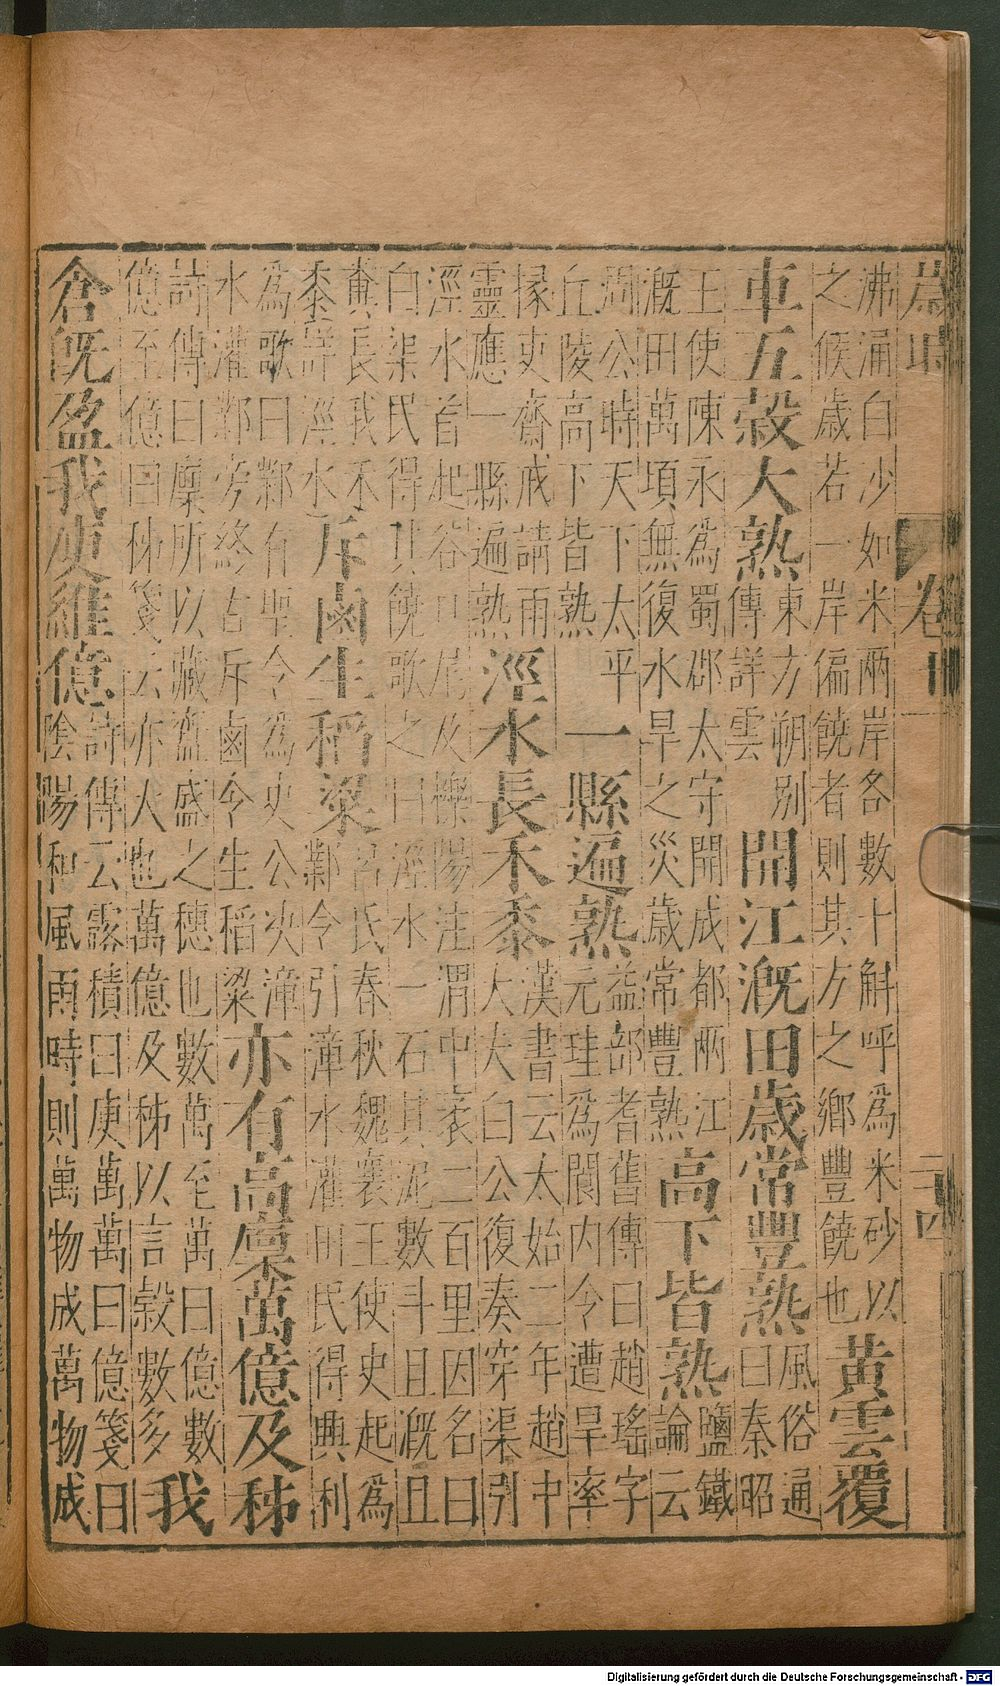 卷十一
二十四
沸涌白沙如米兩岸各數十斛呼為米砂以
之候歲若一岸偏饒者則其方之鄉豐饒也
黃雲覆
車五穀大熟
東方朔別
傳詳雲
開江溉田歲常豐熟
風俗通
曰秦昭
王使陳永為蜀郡太守開成都兩江
溉田萬頃無復水旱之災歲常豐熟
高下皆熟
鹽鐵
論云
周公時天下太平
丘陵高下皆熟
一縣遍熟
益部耆舊傳曰趙瑤字
元珪為閬内令遭旱率
掾吏齋戒請雨
靈應一縣遍熟
涇水長禾黍
漢書云太始二年趙中
大夫白公復奏穿渠引
涇水首起谷口尾及櫟陽注渭中袤二百里因名曰
白渠民得其饒歌之曰涇水一石其泥數斗且溉且
糞長我禾
黍詳涇水
斥鹵生稻粱
呂氏春秋魏襄王使史起為
鄴令引漳水灌田民得興利
為歌曰鄴有聖令為史公決漳
水灌鄴旁終古斥鹵令生稻粱
亦有高廩萬億及秭
詩傳曰廩所以藏齍盛之穗也數萬至萬曰億數
億至億曰秭箋云亦大也萬億及秭以言穀數多
我
倉既盈我庾維億
詩傳云露積曰庾萬萬曰億箋曰
陰陽和風雨時則萬物成萬物成
Digitalisierung gefördert durch die Deutsche Forschungsgemeinschaft - DFG